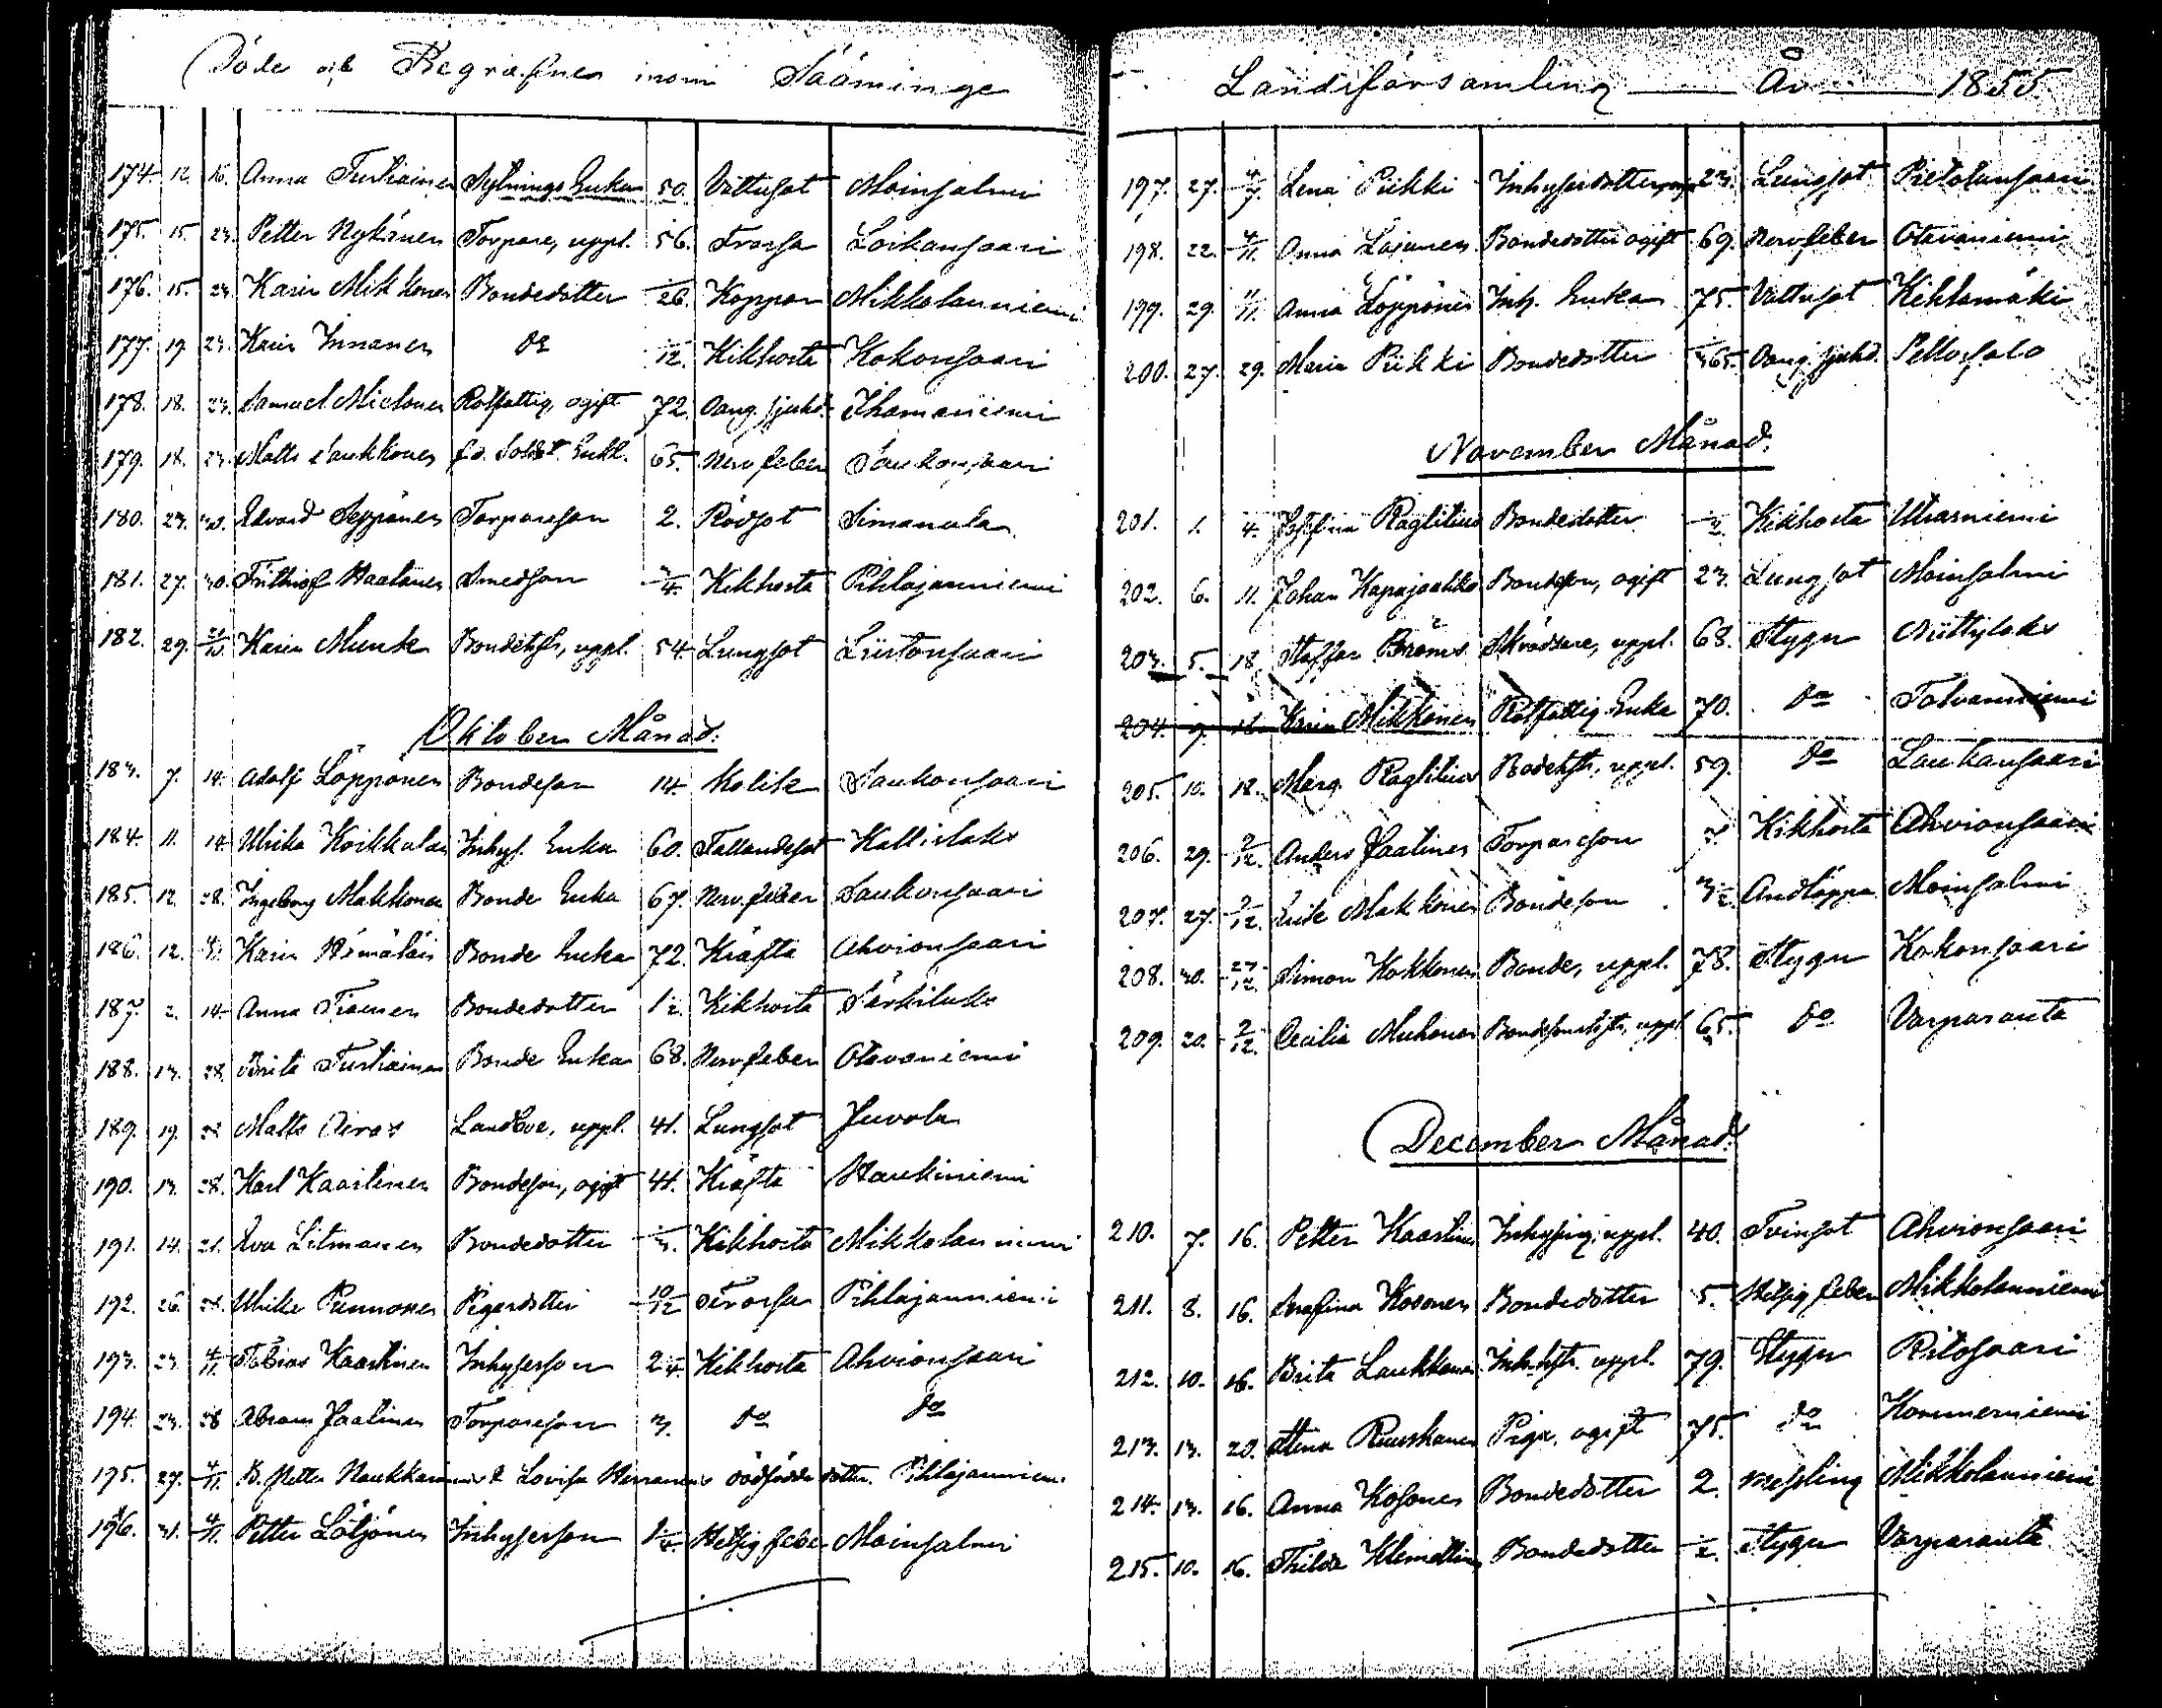 Döde och Begrafne inom Sääminge
174. 12. 16. Anna Turtiainen Sytnings Enka 50. Vattusot Moinsalmi
175. 15. 23. Petter Nykänen Torpare, uppl. 56. Frossa Loikansaari
176. 15. 23. Karin Mikkonen Bondedotter 26. Koppor Mikkolanniemi
177. 19. 23. Karin Innanen do 12. Kikhosta Kokonsaari
178. 18. 23. Samuel Mielonen Rotfattig, ogift 72. Oang. sjukd. Ihamaniemi
179. 18. 23. Matts Laukkonen f.d. Soldat Enkl. 65. Nervfeber Saukonsaari
180. 23. 30. Edvard Seppänen Torpareson 2. Rödsot Simanala
181. 27. 30. Frithiof Haatanen Smedson 3/4. Kikhosta Pihlajanniemi
182. 29. Karin Munk Bondehstr, uppl. 54. Lungsot Liistonsaari
Oktober Månad.
183. 7. 14. Adolf Löppönen Bondeson 14. Kolik Saukonsaari
184. 11. 14. Ulrika Koikkalain Inhys. Enka 60. Fallandesot Kallislaks
185. 12. 28. Ingeborg Makkonen Bonde Enka 67. Nervfeber Saukonsaari
186. 12. Karin Hämäläin Bonde Enka 72. Kräfta Ahvionsaari
187. 2. 14. Anna Tiainen Bondedotter 1 1/2. Kikhosta Särkilaks
188. 13. 28. Brita Turtiainen Bonde Enka 68. Nervfeber Otavaniemi
189. 19. 28. Matts Airas Landbo, uppl. 41. Lungsot Juvola
190. 13. 28. Karl Kaartinen Bondeson, ogift 41. Kräfta Haukiniemi
191. 14. 21. Eva Litmanen Bondedotter Kikhosta Mikkolanniemi
192. 26. 28. Ulrika Punnonen Pigesdotter 10/12 Frossa Pihlajanniemi
193. 23. 4/11. Tobias Kaartinen Inhyseson 2 1/4. Kikhosta Ahvionsaari
194. 23. 28 Abram Jaatinen Torpareson 3. do do
195. 27. 4/11. B. Petter Naukkarinens & Lovisa Herranens dödfödde dotter. Pihlajanniemi
196. 31. 4/11. Petter Lötjönen Inhyseson Hetsig feber Moinsalmi
Landsförsamling År 1855
197. 27. Lena Piikki Inhysesdotter, 23. Lungsot Pietolansaari
198. 22. 4/11. Anna Lajunen Bondedotter ogift 69. Nervfeber Otavaniemi
199. 29. 11/11. Anna Löppönen Inh. Enka 75. Vattusot Kiklamäki
200. 27. 29. Maria Piikki Bondedotter Oang. sjukd. Pellossalo
November Månad.
201. 1. 4. Josefina Raglitius Bondedotter 1/2. Kikhosta Utrasniemi
202. 6. 11. Johan Bondeson, ogift 23. Lungsot Moinsalmi
203. 5. 18. Staffan Broms Skräddare, uppl. 68. Stygn Niittylaks
204. 9. Karin Mikkonen Rotfattig Enka 70. do Tolvanniemi
205. 10. 18. Marg. Raglitius Bondehstr, uppl. 59. do Laukansaari
206. 29. 2/12. Anders Jaatinen Torpareson Kikhosta Ahvionsaari
207. 27. 2/12. Erik Makkonen Bondeson Andtäppa Moinsalmi
208. 30. 27/12. Simon Kokkonen Bonde, uppl. 78. Stygn Kokonsaari
209. 20. 2/12. Cecilia Muhonen Bondesonshstr, uppl. 65. do Varparanta
December Månad.
210. 7. 16. Petter Kaartinen Inhysing, uppl. 40. Tvinsot Ahvionsaari
211. 8. 16. Serafina Kosonen Bondedotter 5. Hetsig feber Mikkolanniemi
212. 10. 16. Brita Laukkanen Inh.hstr. uppl. 79. Stygn Ritosaari
213. 13. 20. Stina Ruuskanen Piga, ogift 75. do Kommerniemi
214. 13. 16. Anna Kosonen Bondedotter 2. Messling Mikkolanniemi
215. 10. 16. Thilda Klemettinen Bondedotter 1/2. Stygn Varparanta